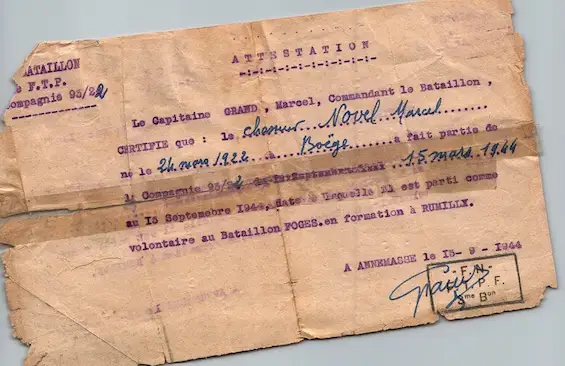 BATAILLON
F.T.P.
Compagnie 95/22
ATTESTATION
-:-:-:-:-:-:-:-:-:-
Le Capitaine GRAND, Marcel, Commandant le Bataillon,
CERTIFIE que : le chasseur Novel Marcel
né le 24 mars 1922 à Boëge a fait partie de
la Compagnie 95/22 15 mars 1944
au 15 Septemebre 1944, date à laquelle il est parti comme
volontaire au Bataillon FOGES.en formation à RUMILLY.
A ANNEMASSE le 15-9-1944
F.N.
T.P.F.
Bon